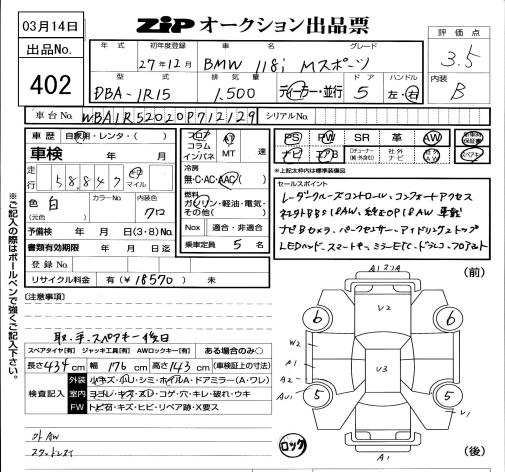 03月14日
ZiP オークション出品票
出品No.
402
年式 初年度登録 車名 グレード
27年12月 BMW 118i Mスポーツ
型式 排気量 ドア ハンドル
DBA-1R15 1,500 ディーラー・並行 5 左・右
評価点
3.5
内装
B
車台No. WBA1R52020P712129 シリアルNo.
車歴 自家用・レンタ・( )
車検 年 月
走行 58,847 km マイル
色 白 (元色) カラーNo. 内装色 クロ
予備検 年 月(3・8)No.
書類有効期限 年 月 日迄
登録No.
リサイクル料金 有(¥18570) 未
フロア コラム インパネ AT MT 速
冷房
無・C・AC・AAC
燃料
ガソリン・軽油・電気・その他( )
Nox 適合・非適合
乗車定員 5 名
PS PW SR 革 AW 新車時保証書
ナビ エアB 社外ナビ 社外AW スペアキー
※上記太枠内は標準装備品
セールスポイント
レーダークルーズコントロール、コンフォートアクセス
ナビBカメラ、パークセンサー、アイドリングストップ
LEDヘッド、スマートキー、ミラーETC、ドラレコ、フロアマット
※ご記入の際はボールペンで強くご記入下さい。
[注意事項]
取・手・スペアキー後日
スペアタイヤ[有] ジャッキ工具[有] AWロックキー[有] ある場合のみ○
長さ434cm 幅176cm 高さ143cm (車検証上の寸法)
検査記入
外装 小キズ・小U・シミ・ホイルA・ドアミラー(A・ワレ)
室内 ヨゴレ・キズ・スレ・コゲ・穴・キレ・破れ・ウキ
FW トビ石・キズ・ヒビ・リペア跡・X要ス
外AW
ロック
(前)
6 6
V2
W2
A1
A2
V3
5 5
V1
A1
(後)